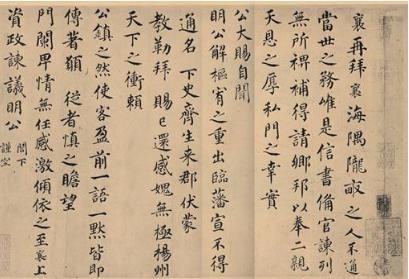 襄再拜襄海隅隴畝之人不通
當世之務唯是信書備官諫列
無所裨補得請鄉邦以奉二親
天恩之厚私門之幸實
公大賜自聞
明公解樞宥之重出臨藩宣不得
通名下史齊生來郡伏蒙
教勒拜賜已還感愧無極楊州
天下之衝賴
公鎮之然使客盈前一語一默皆即
傳者願從者慎之瞻望
門闌卑情無任感激傾依之至襄上
資政諫議明公閤下
謹空